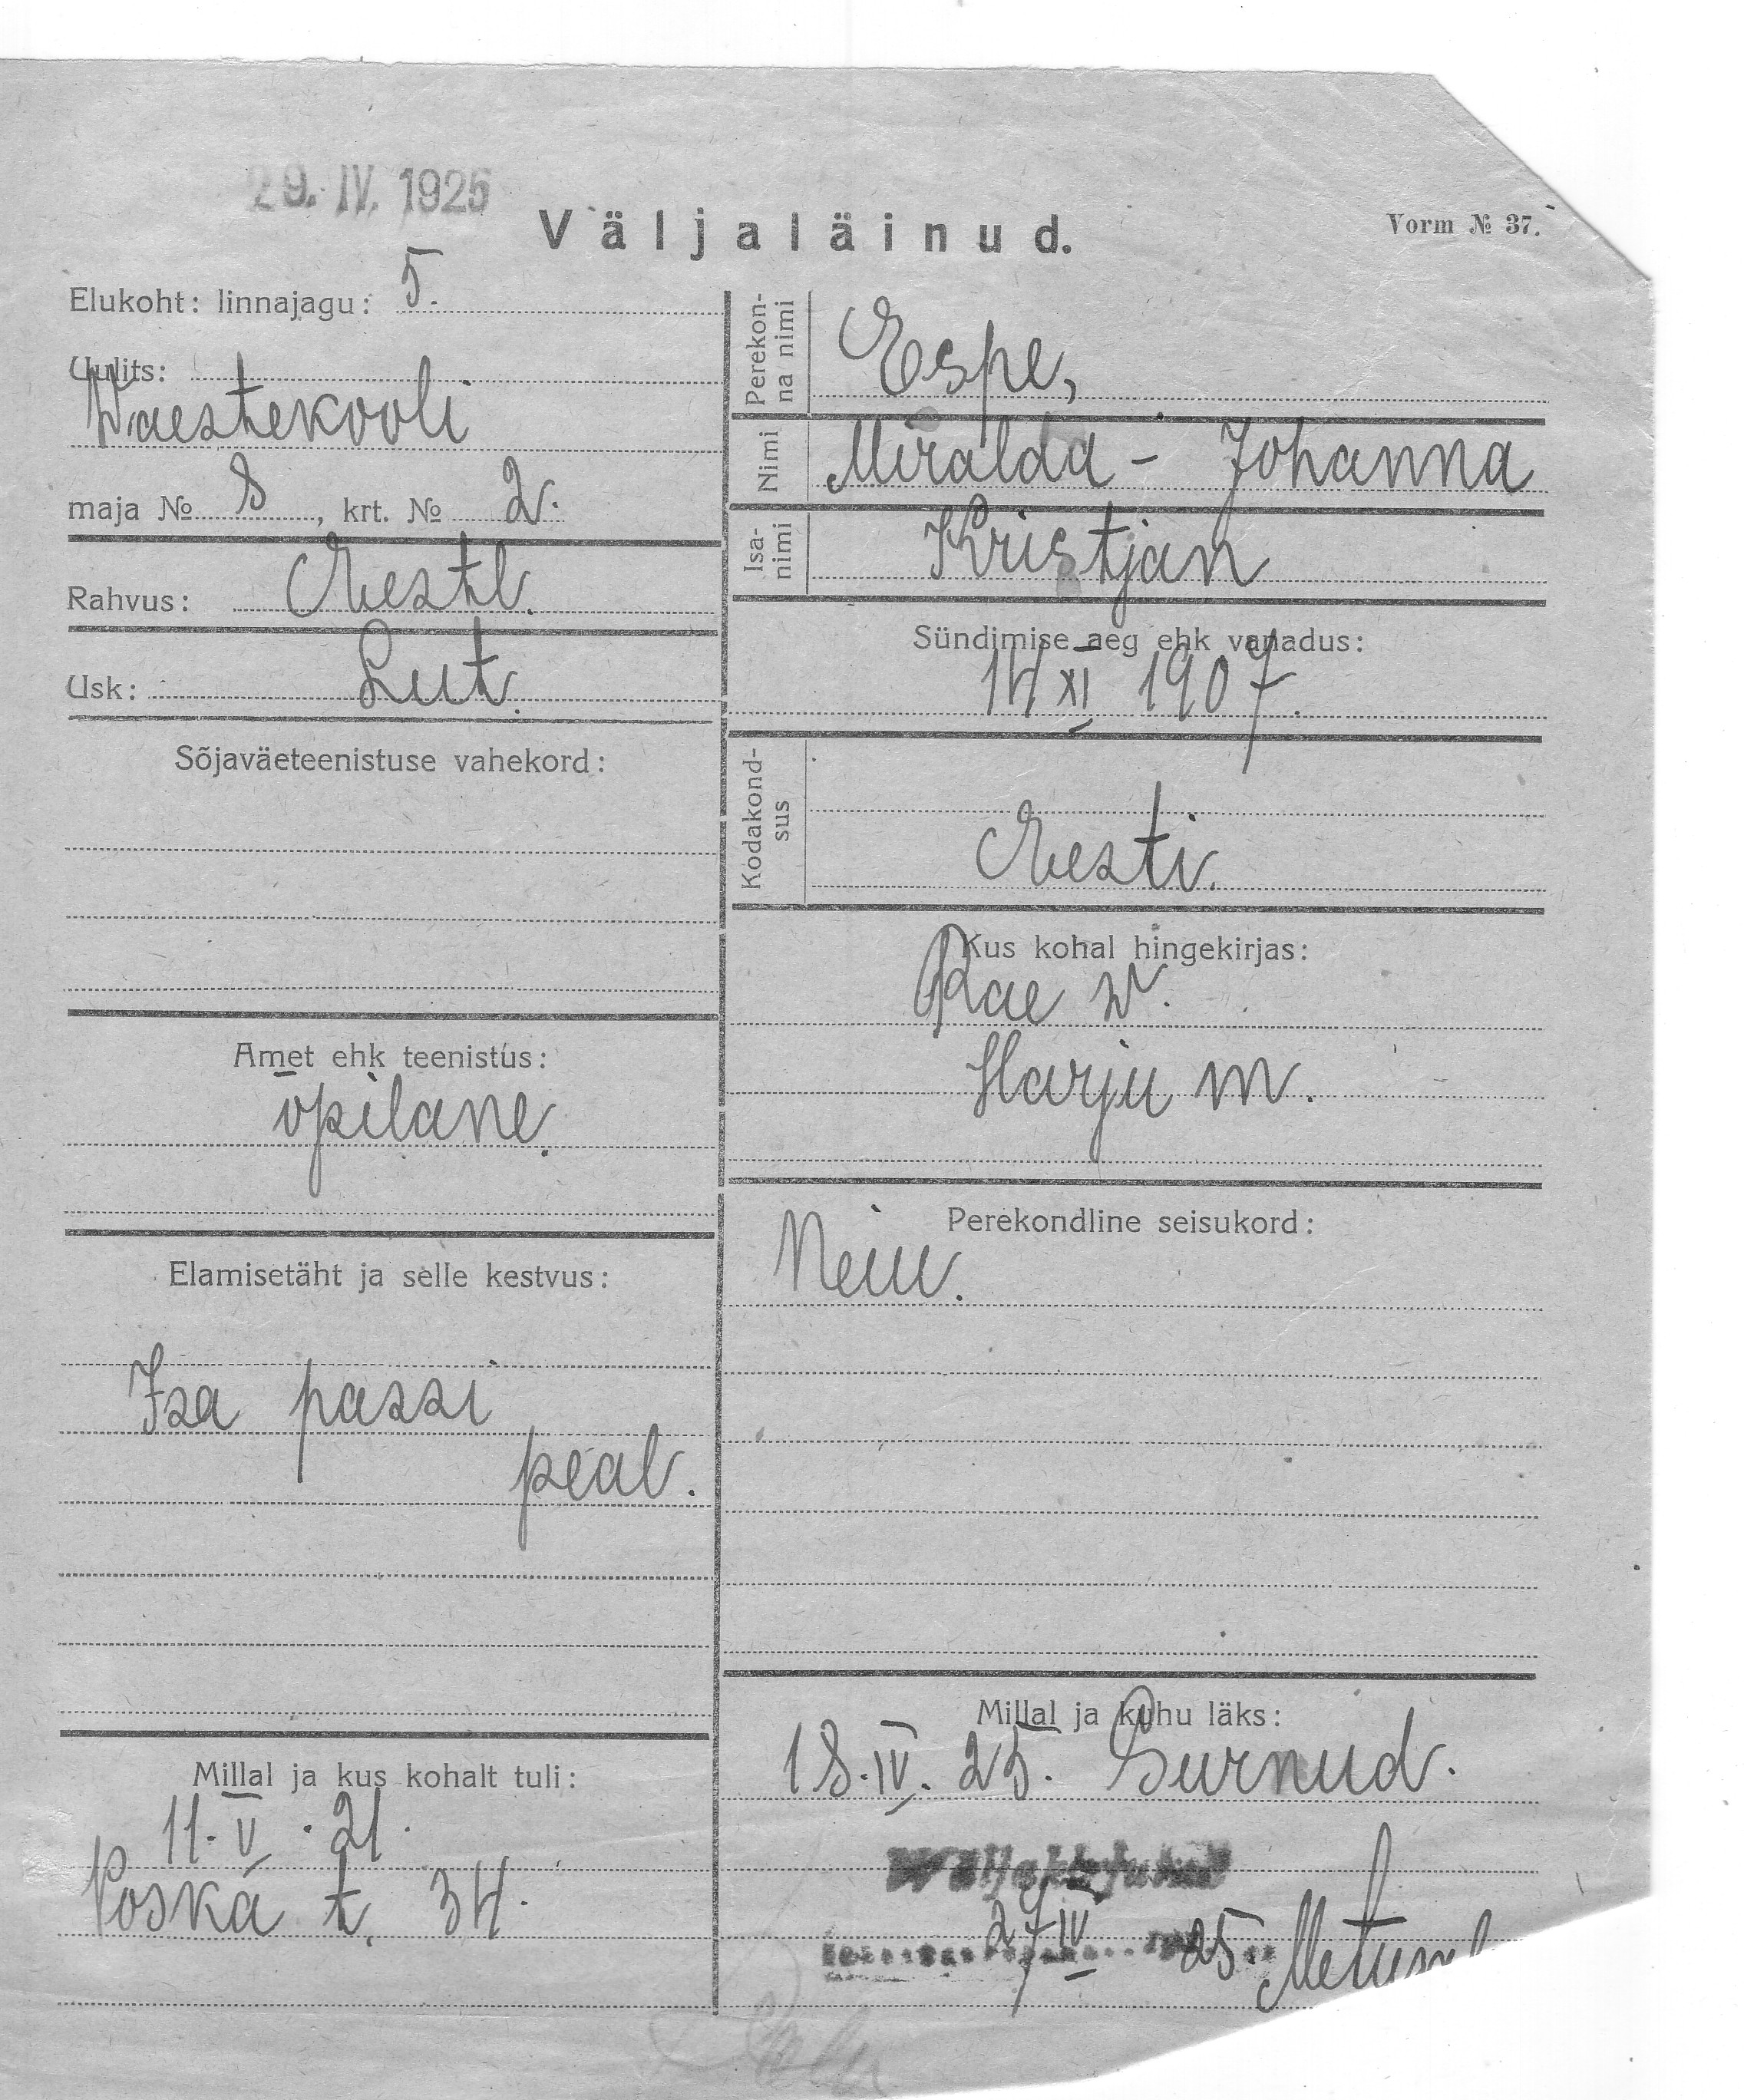 29. IV. 1925
Väljaläinud.
Vorm № 37.
Elukoht: linnajagu: 5.
Uulits:
Waestekooli
maja № 8, krt. № 2.
Rahvus: Eestl.
Usk: Lut.
Sõjaväeteenistuse vahekord:
Amet ehk teenistus:
õpilane.
Elamisetäht ja selle kestvus:
Isa passi
peal.
Millal ja kus kohalt tuli:
11. V. 21.
Poska t. 34.
Perekon-
na nimi
Espe,
Nimi
Miralda - Johanna
Isa-
nimi
Kristjan
Sündimise aeg ehk vanadus:
14 XI 1907.
Kodakond-
sus
Eesti.
Kus kohal hingekirjas:
Rae w.
Harju m.
Perekondline seisukord:
Neiu.
Millal ja kuhu läks:
18. IV. 25. Surnud.
27 IV 25.